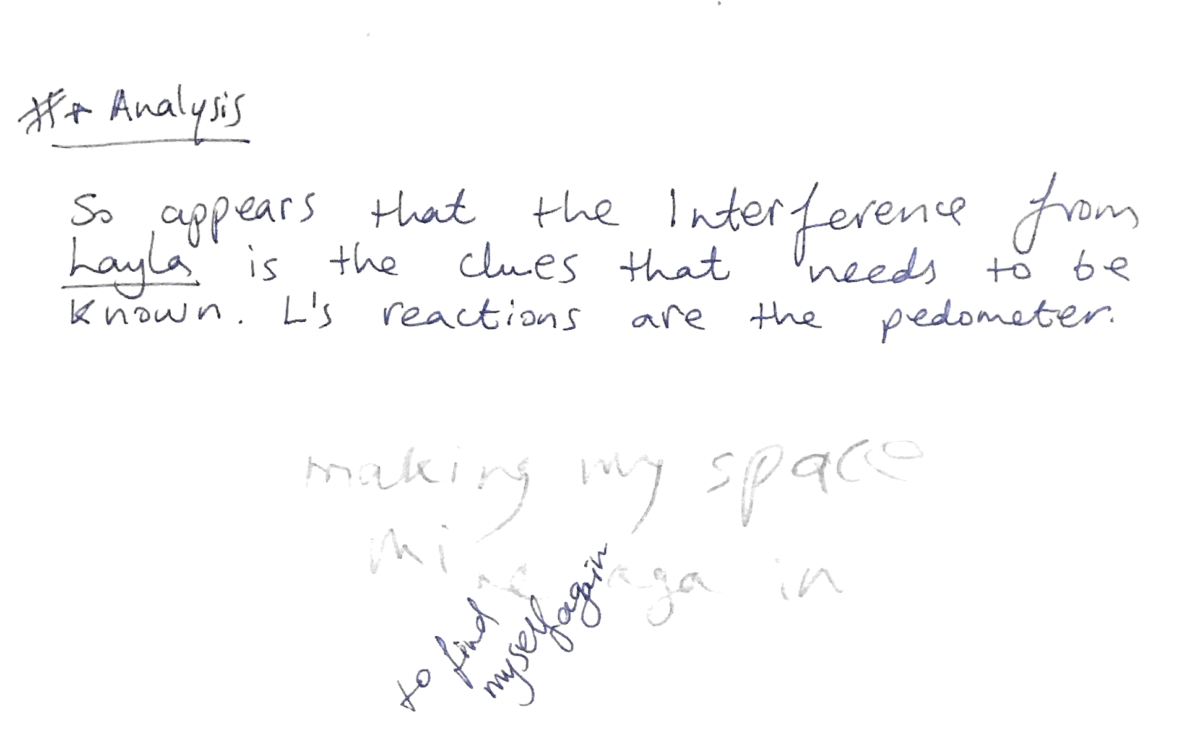 #+ Analysis
So appears that the Interference from
Layla is the clues that needs to be
known. L's reactions are the pedometer.
making my space
mine again
to find
myself again